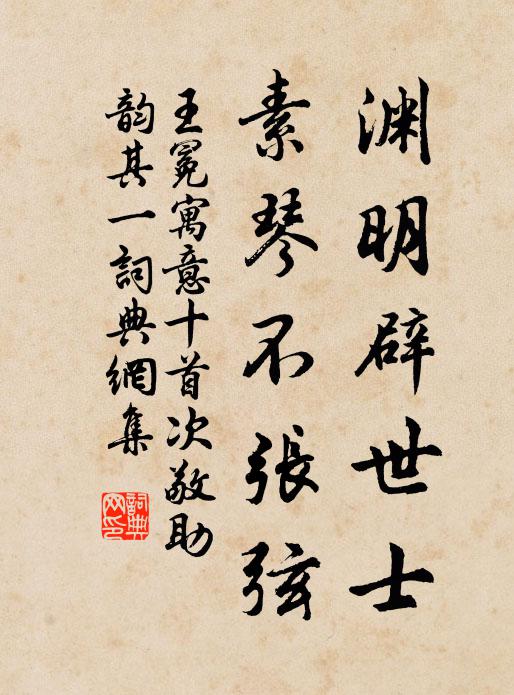 渊明辟世士
素琴不張弦
王冕寓意十首次敬助
韵其一詞典網集
詞典网印